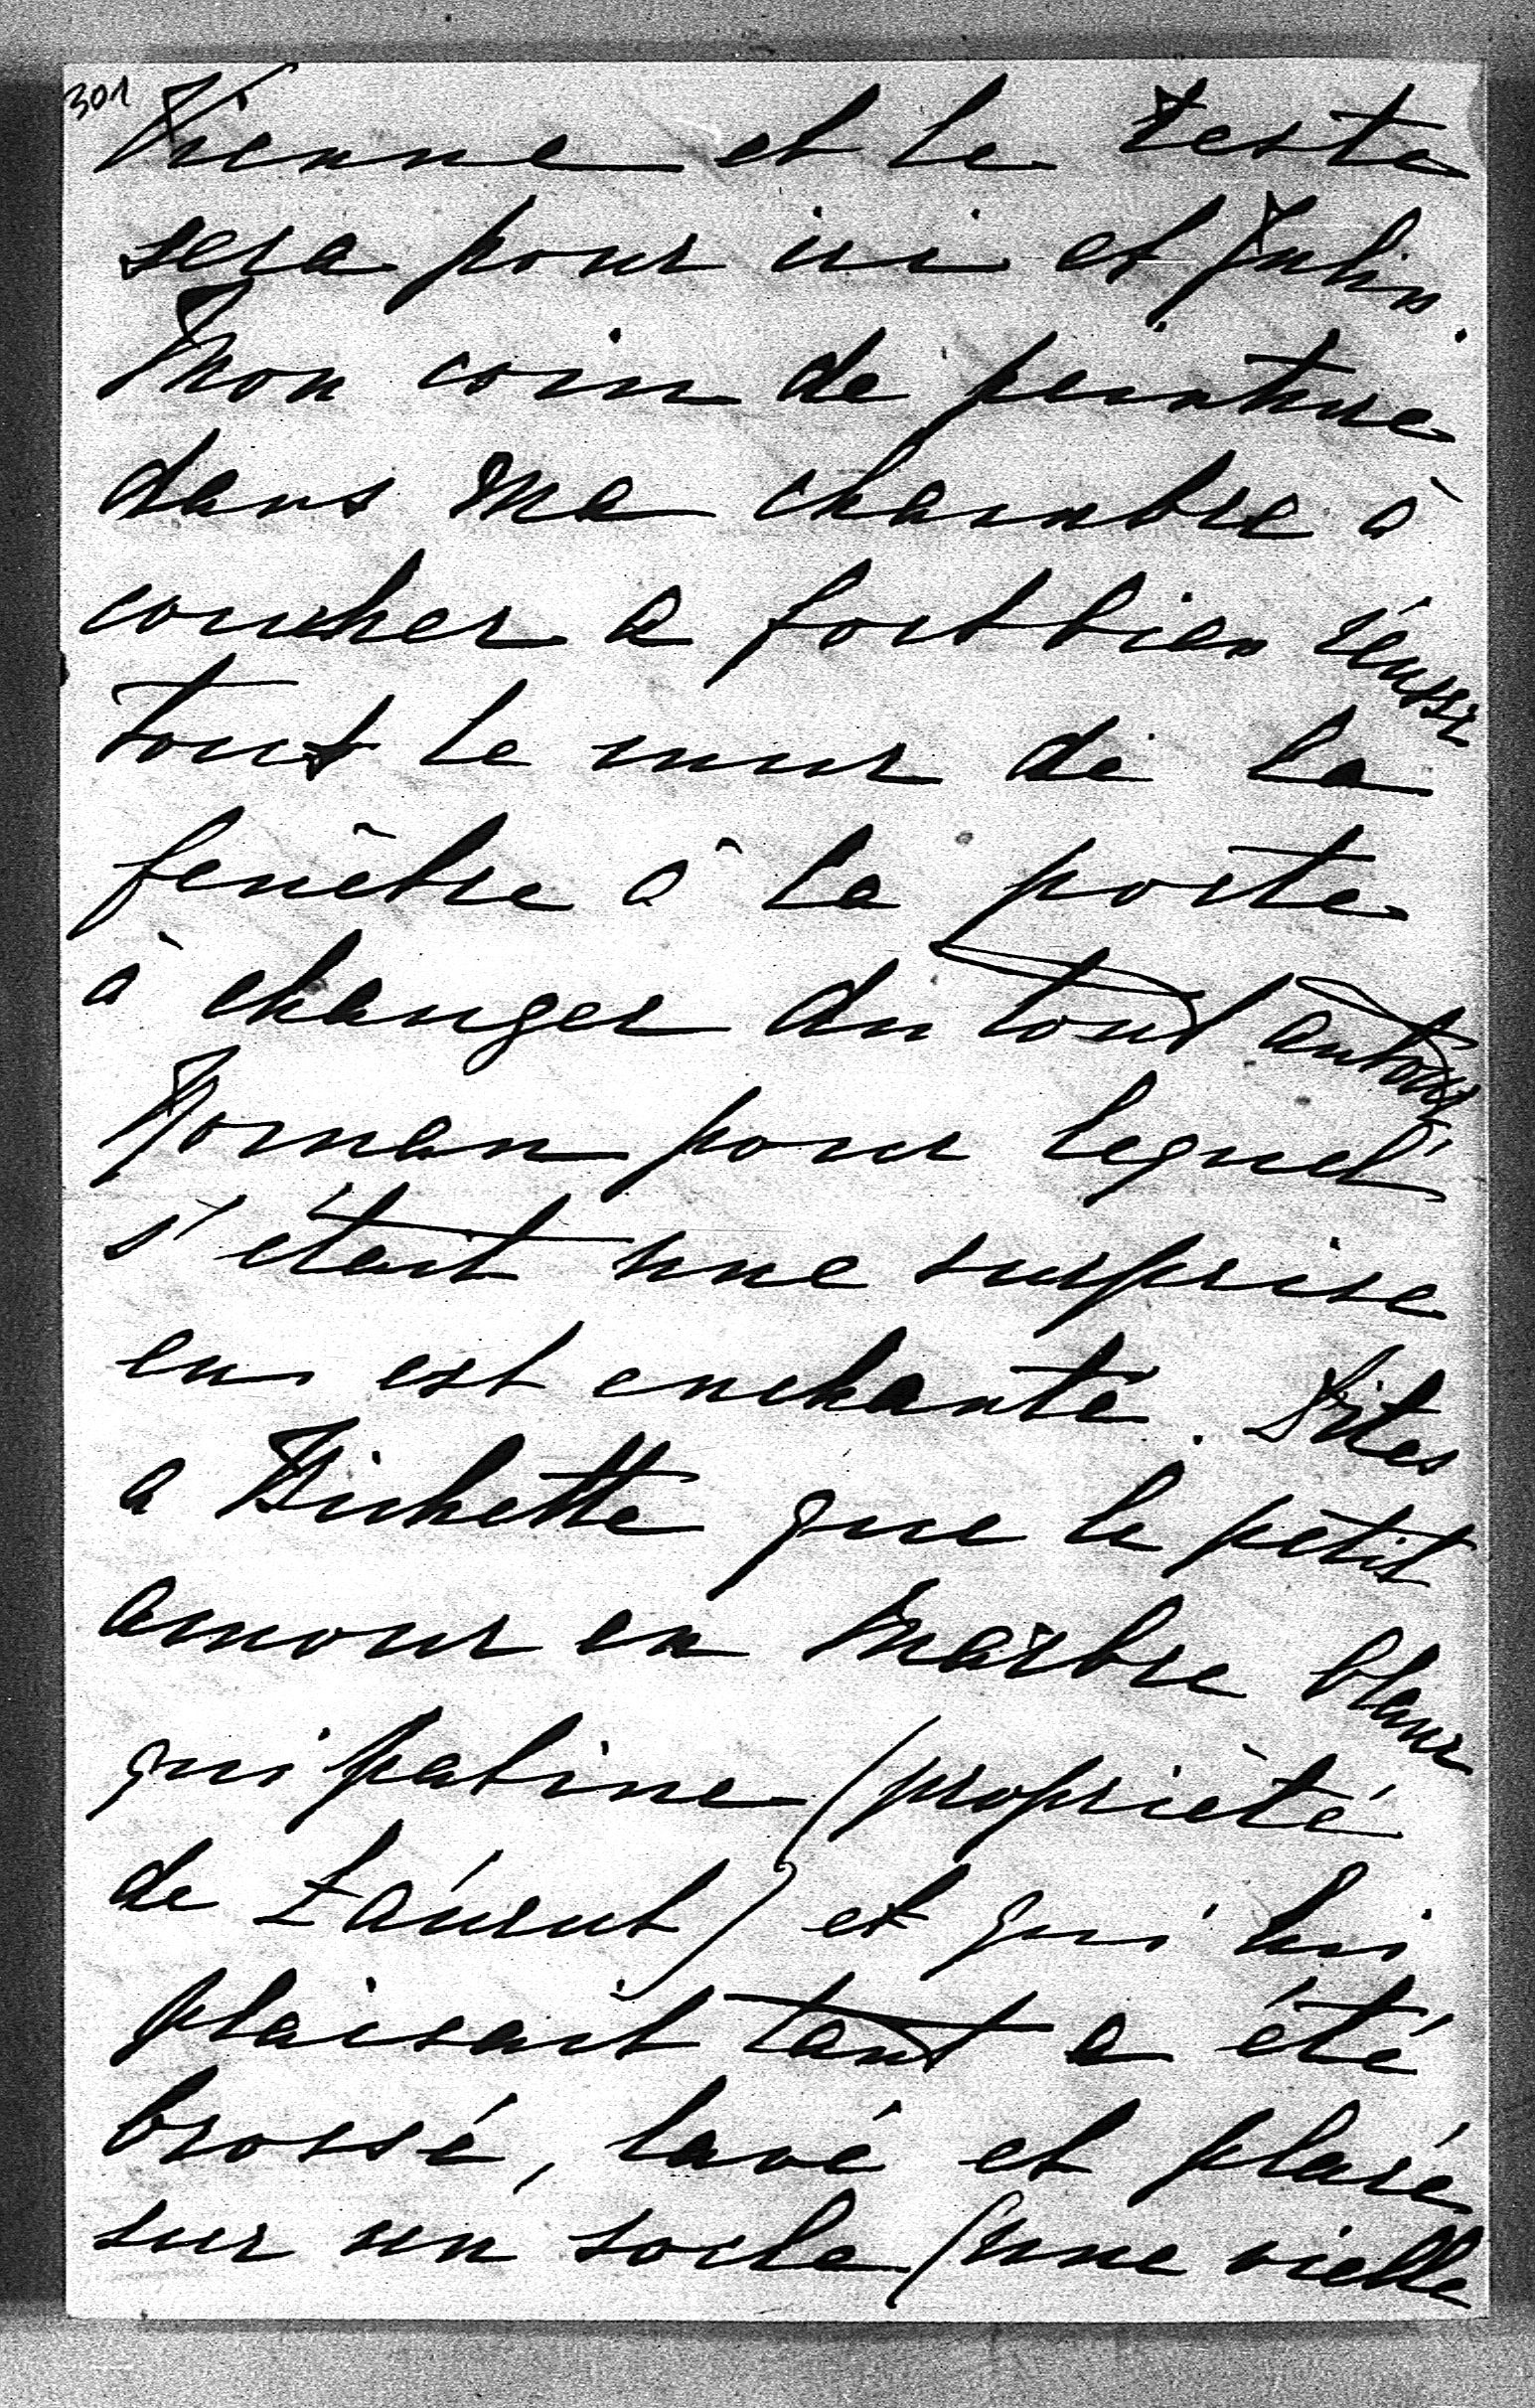 301
Vienne et le reste
sera pour ici et Julin.
Mon coin de peinture
dans ma chambre à
coucher a fort bien réussi
tout le mur de la
fenêtre à la porte
à changer du tout autour
Roman pour lequel
s'était une surprise
en est enchanté. Dites
a Bichette que le petit
amour en marbre blanc
qui patine (propriété
de Laurent) et qui lui
plaisait tant a été
brossé, lavé et placé
sur un socle (une vielle